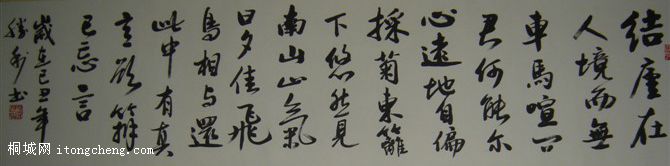 结廬在
人境而無
車馬喧问
君何能尔
心遠地自偏
採菊東籬
下悠然見
南山山氣
日夕佳飛
鳥相与還
此中有真
意欲辩
已忘言
歲在己丑年
书
桐城网 itongcheng.com